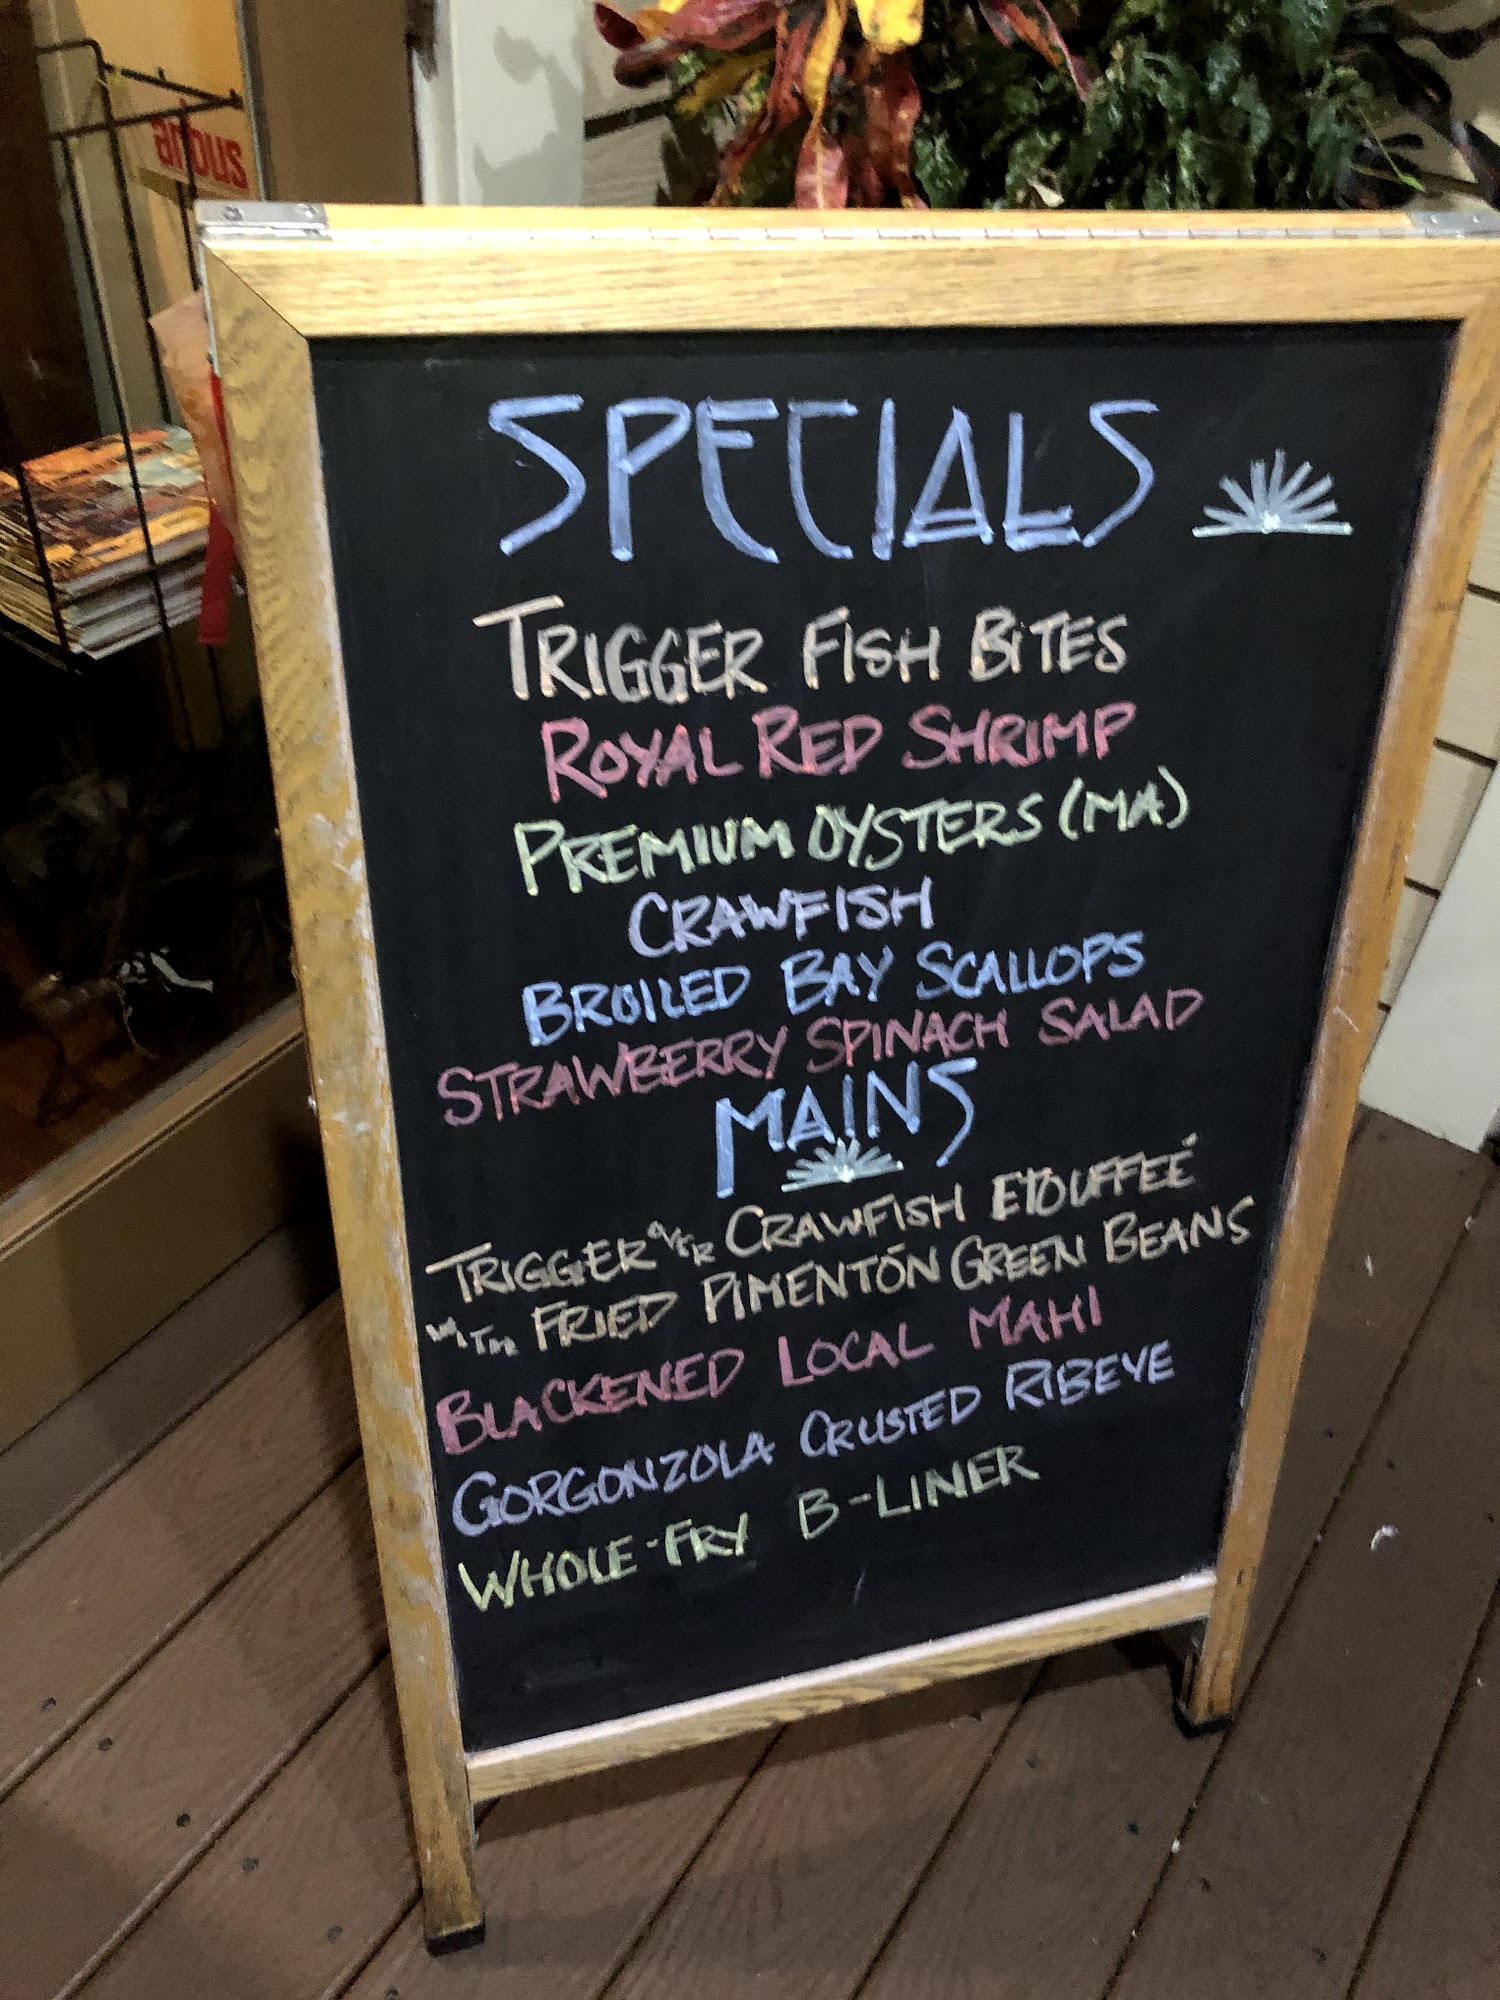 anbus
SPECIALS
TRIGGER FISH BITES
ROYAL RED SHRIMP
PREMIUM OYSTERS (MA)
CRAWFISH
BROILED BAY SCALLOPS
STRAWBERRY SPINACH SALAD
MAINS
TRIGGER OVER CRAWFISH ETOUFFEÉ
WITH FRIED PIMENTÓN GREEN BEANS
BLACKENED LOCAL MAHI
GORGONZOLA CRUSTED RIBEYE
WHOLE-FRY B-LINER